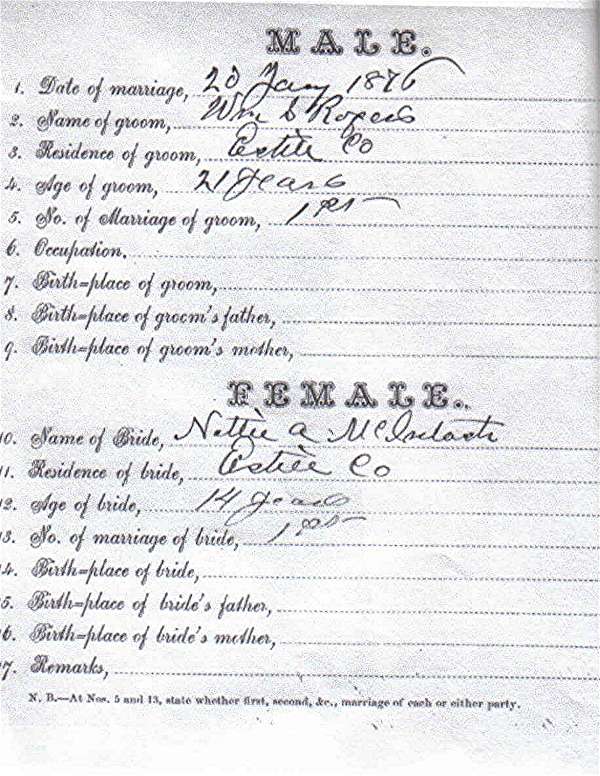 MALE.
1. Date of marriage, 20 Jany 1876
2. Name of groom, Wm S Rogers
3. Residence of groom, Estill Co
4. Age of groom, 21 years
5. No. of Marriage of groom, 1st
6. Occupation.
7. Birth=place of groom,
8. Birth=place of groom's father,
9. Birth=place of groom's mother,
FEMALE.
10. Name of Bride, Nettie A
11. Residence of bride, Estill Co
12. Age of bride, 14 years
13. No. of marriage of bride, 1st
4. Birth=place of bride,
5. Birth=place of bride's father,
6. Birth=place of bride's mother,
7. Remarks,
N. B.—At Nos. 5 and 13, state whether first, second, &c., marriage of each or either party.